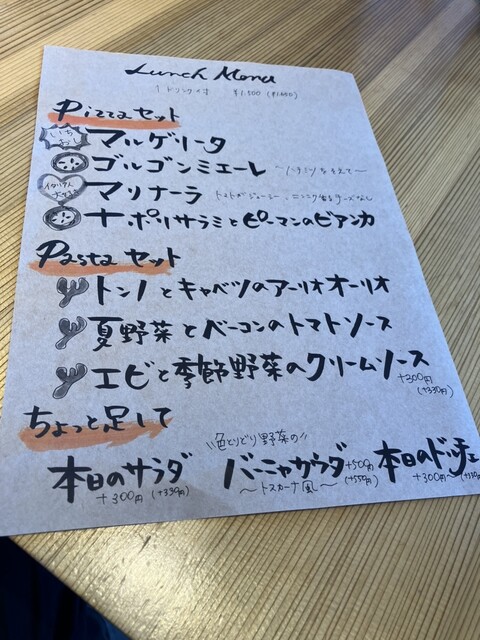 Lunch Menu
1ドリンク付 ¥1,500 (¥1,650)
Pizzaセット
いちおし マルゲリータ
ゴルゴンミエーレ ～ハチミツを添えて～
マリナーラ トマトがジューシー、ニンニク香るチーズなし
ナポリサラミとピーマンのビアンカ
Pastaセット
トンノとキャベツのアーリオオーリオ
夏野菜とベーコンのトマトソース
エビと季節野菜のクリームソース +300円 (+330円)
ちょっと足して
本日のサラダ +300円 (+330円)
色とりどり野菜の バーニャカウダ ～トスカーナ風～ +500円 (+550円)
本日のドルチェ +300円～